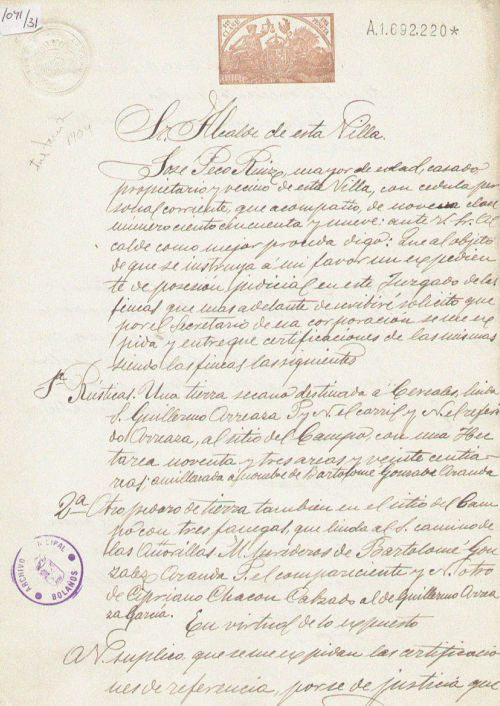 1091
/31
A.1.692.220*
Sr. Alcalde de esta Villa.
José Peco Ruiz, mayor de edad, casado
propietario y vecino de esta Villa, con cedula per
sonal corriente, que acompaño, de novena clase
numero ciento cincuenta y nueve: ante V. Sr. Al
calde como mejor proceda digo: Que al objeto
de que se instruya á mi favor un expedien
te de posesion judicial en este Juzgado de las
fincas que mas adelante describiré solicito que
por el Secretario de esa corporación se me ex
pida y entregue certificaciones de las mismas
siendo las fincas las siguientes
1ª Rústicas. Una tierra secano destinada á Cereales, linda
S. Guillermo Arreaza P. y N. el carril y N. el referi
do Arreaza, al sitio del Campo, con una Hec
tarea noventa y tres areas y veinte centia-
reas: amillarada a nombre de Bartolomé Gonzalez Aranda
2ª Otro pedazo de tierra tambien en el sitio del Cam
po con tres fanegas, que linda al S. camino de
las Añorillas M. herederos de Bartolomé Gon
zalez Aranda P. el compareciente y N. otro
de Cipriano Chacon Calzado al de Guillermo Arrea
za García.
En virtud de lo expuesto
A V. suplico, que se me expidan las certificacio
nes de referencia, por ser de justicia que
ARCHIVO MUNICIPAL
BOLAÑOS